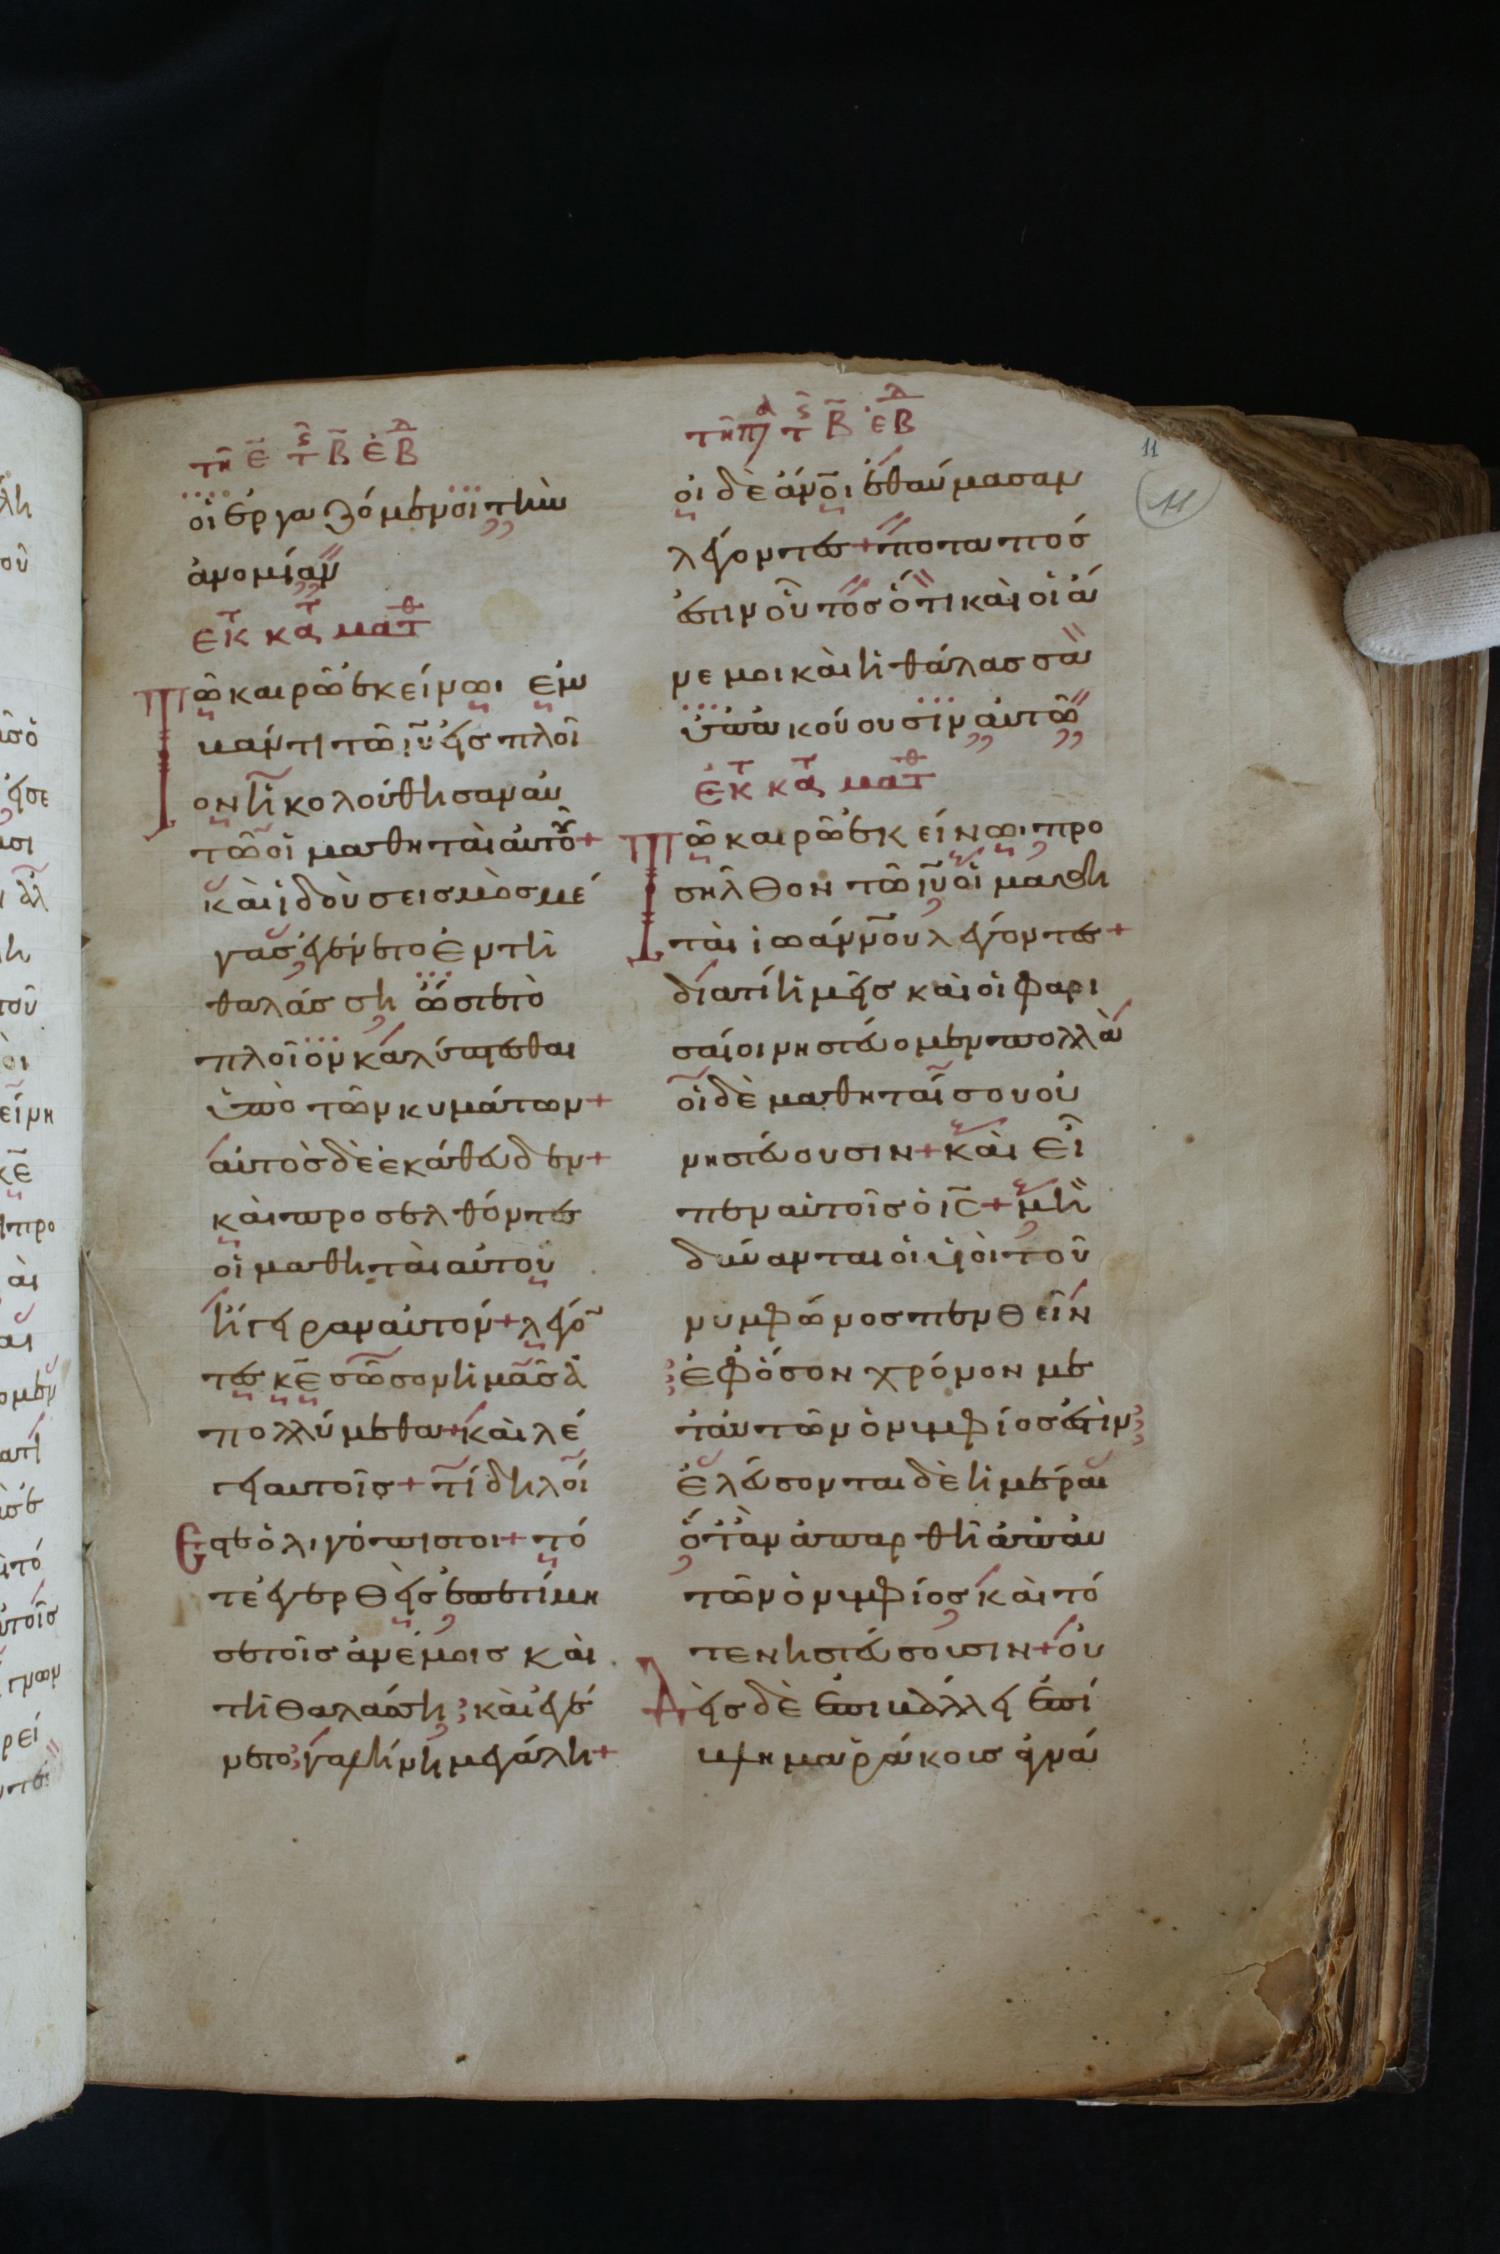 τῆ ε̄ τ ς̂ Β̄ ἐβδ
οἱ ἐργαζόμενοι τὴν
ἀνομίαν
ἐκ τ κατ ματθ
Τῶ καιρῶ ἐκείνωι ἐμ
βάντι τῶ ιῦ εἰς πλοῖ
ον ἠκολούθησαν αυ
τῶ οἱ μαθηταὶ αὐτοῦ +
καὶ ἰδοὺ σεισμὸς μέ
γας ἐγένετο ἐν τῆ
θαλάσση ὥστε τὸ
πλοῖον καλύπτεσθαι
ὑπὸ τῶν κυμάτων +
αὐτὸς δὲ ἐκάθευδεν +
καὶ προσελθόντες
οἱ μαθηταὶ αὐτοῦ
ἤγειραν αὐτόν + λέγο̄
τες κ̄ε σῶσον ἡμᾶς ἀ
πολλύμεθα + καὶ λέ
γει αὐτοῖς + τί δηλοί
ἐστε ὀλιγόπιστοι + τό
τε ἐγερθεὶς ἐπετίμη
σε τοῖς ἀνέμοις καὶ
τῆ θαλάσση ; καὶ ἐγέ
νετο γαλήνη μεγάλη +
τῆ π α τ ς̂ Β̄ ἐβδ
οἱ δὲ ἀνο̄ι ἐθαύμασαν
λέγοντες + ποταπός
ἐστιν οὗτος ὅτι καὶ οἱ ἄ
νεμοι καὶ ἡ θάλασσα
ὑπακούουσιν αὐτῶ
ἐκ τ κατ ματθ
Τῶ καιρῶ ἐκείνωι προ
σῆλθον τῶ ιῦ οἱ μαθη
ταὶ ἰωάννου λέγοντες +
διατί ἡμεῖς καὶ οἱ φαρι
σαίοι νηστεύομεν πολλὰ
οἱ δὲ μαθηταί σου οὐ
νηστεύουσιν + καὶ εἶ
πεν αὐτοῖς ὁ ιC + μὴ
δύνανται οἱ υἱοὶ τοῦ
νυμφῶνος πενθεῖν
ἐφ' ὅσον χρόνον με
τ' αὐτῶν ὁ νυμφίος ἐστὶν ;
ἐλεύσονται δὲ ἡμέραι
ὅταν ἀπαρθῆ ἀπ' αυ
τῶν ὁ νυμφίος καὶ τό
τε νηστεύσουσιν + οὐ
δεὶς δὲ ἐπιβάλλει ἐπί
βλημα ῥάκους ἀγνά
11
11